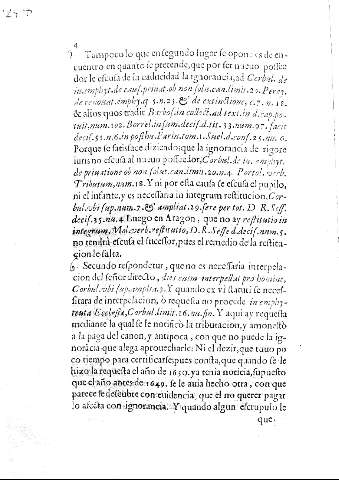 4
7 Tampoco lo que en segundo lugar se opone es de en-
cuentro en quanto se pretende, que por ser nueuo posse-
dor le escusa de la caducidad la ignorancia, ad Corbul. de
in emphyt. de caus. priuat. ob non solu. can. limit. 20. Perez.
de renouat. emphy. q. 5. n. 23. & de extinctione, c. 7. n. 18.
& alios quos tradit Barbos. in collect. ad text. in d. cap. po-
tuit, num. 102. Borrel. in sum. decis. d. tit. 23. num. 97. facit
decis. 35. n. 6. in posthu. Farin. tom. 1. Suel. d. cons. 25. nu. 6.
Porque se satisface diziendo: que la ignorancia de rigore
iuris no escusa al nueuo possessor, Corbul. de iu. emphyt.
de priuatione ob non solut. can. limit. 20. n. 4. Portol. verb.
Tributum, num. 18. Y ni por esta causa se escusa el pupilo,
ni el infante, y es necessaria in integrum restitucion. Cor-
bul. vbi sup. num. 7. & ampliat. 29. fere per tot. D. R. Sesse
decis. 35. nu. 4. Luego en Aragon, que no ay restitutio in
integrum, Mol. verb. restitutio, D. R. Sesse d. decis. num. 5.
no tendrà escusa el sucessor, pues el remedio de la restitu-
cion le falta.
8 Secundo respondetur, que no es necessaria interpela-
cion del señor directo, dies enim interpellat pro homine,
Corbul. vbi sup. amplia. 2. Y quando ex vi statuti se neces-
sitara de interpelacion, ò requesta no procede in emphy-
teuta Ecclesiæ, Corbul. limit. 26. nu. fin. Y aqui ay requesta
mediante la qual se le notificò la tributacion, y amonestò
a la paga del canon, y antipoca, con que no puede la ig-
norãcia que alega aprouecharle: Ni el dezir, que tuuo po
co tiempo para certificarse, pues consta, que quando se le
hizo la requesta el año de 1650. ya tenia noticia, supuesto
que el año antes de 1649. se le auia hecho otra, con que
parece se descubre con euidencia, que el no querer pagar
lo afecta con ignorancia. Y quando algun escrupulo le
que-